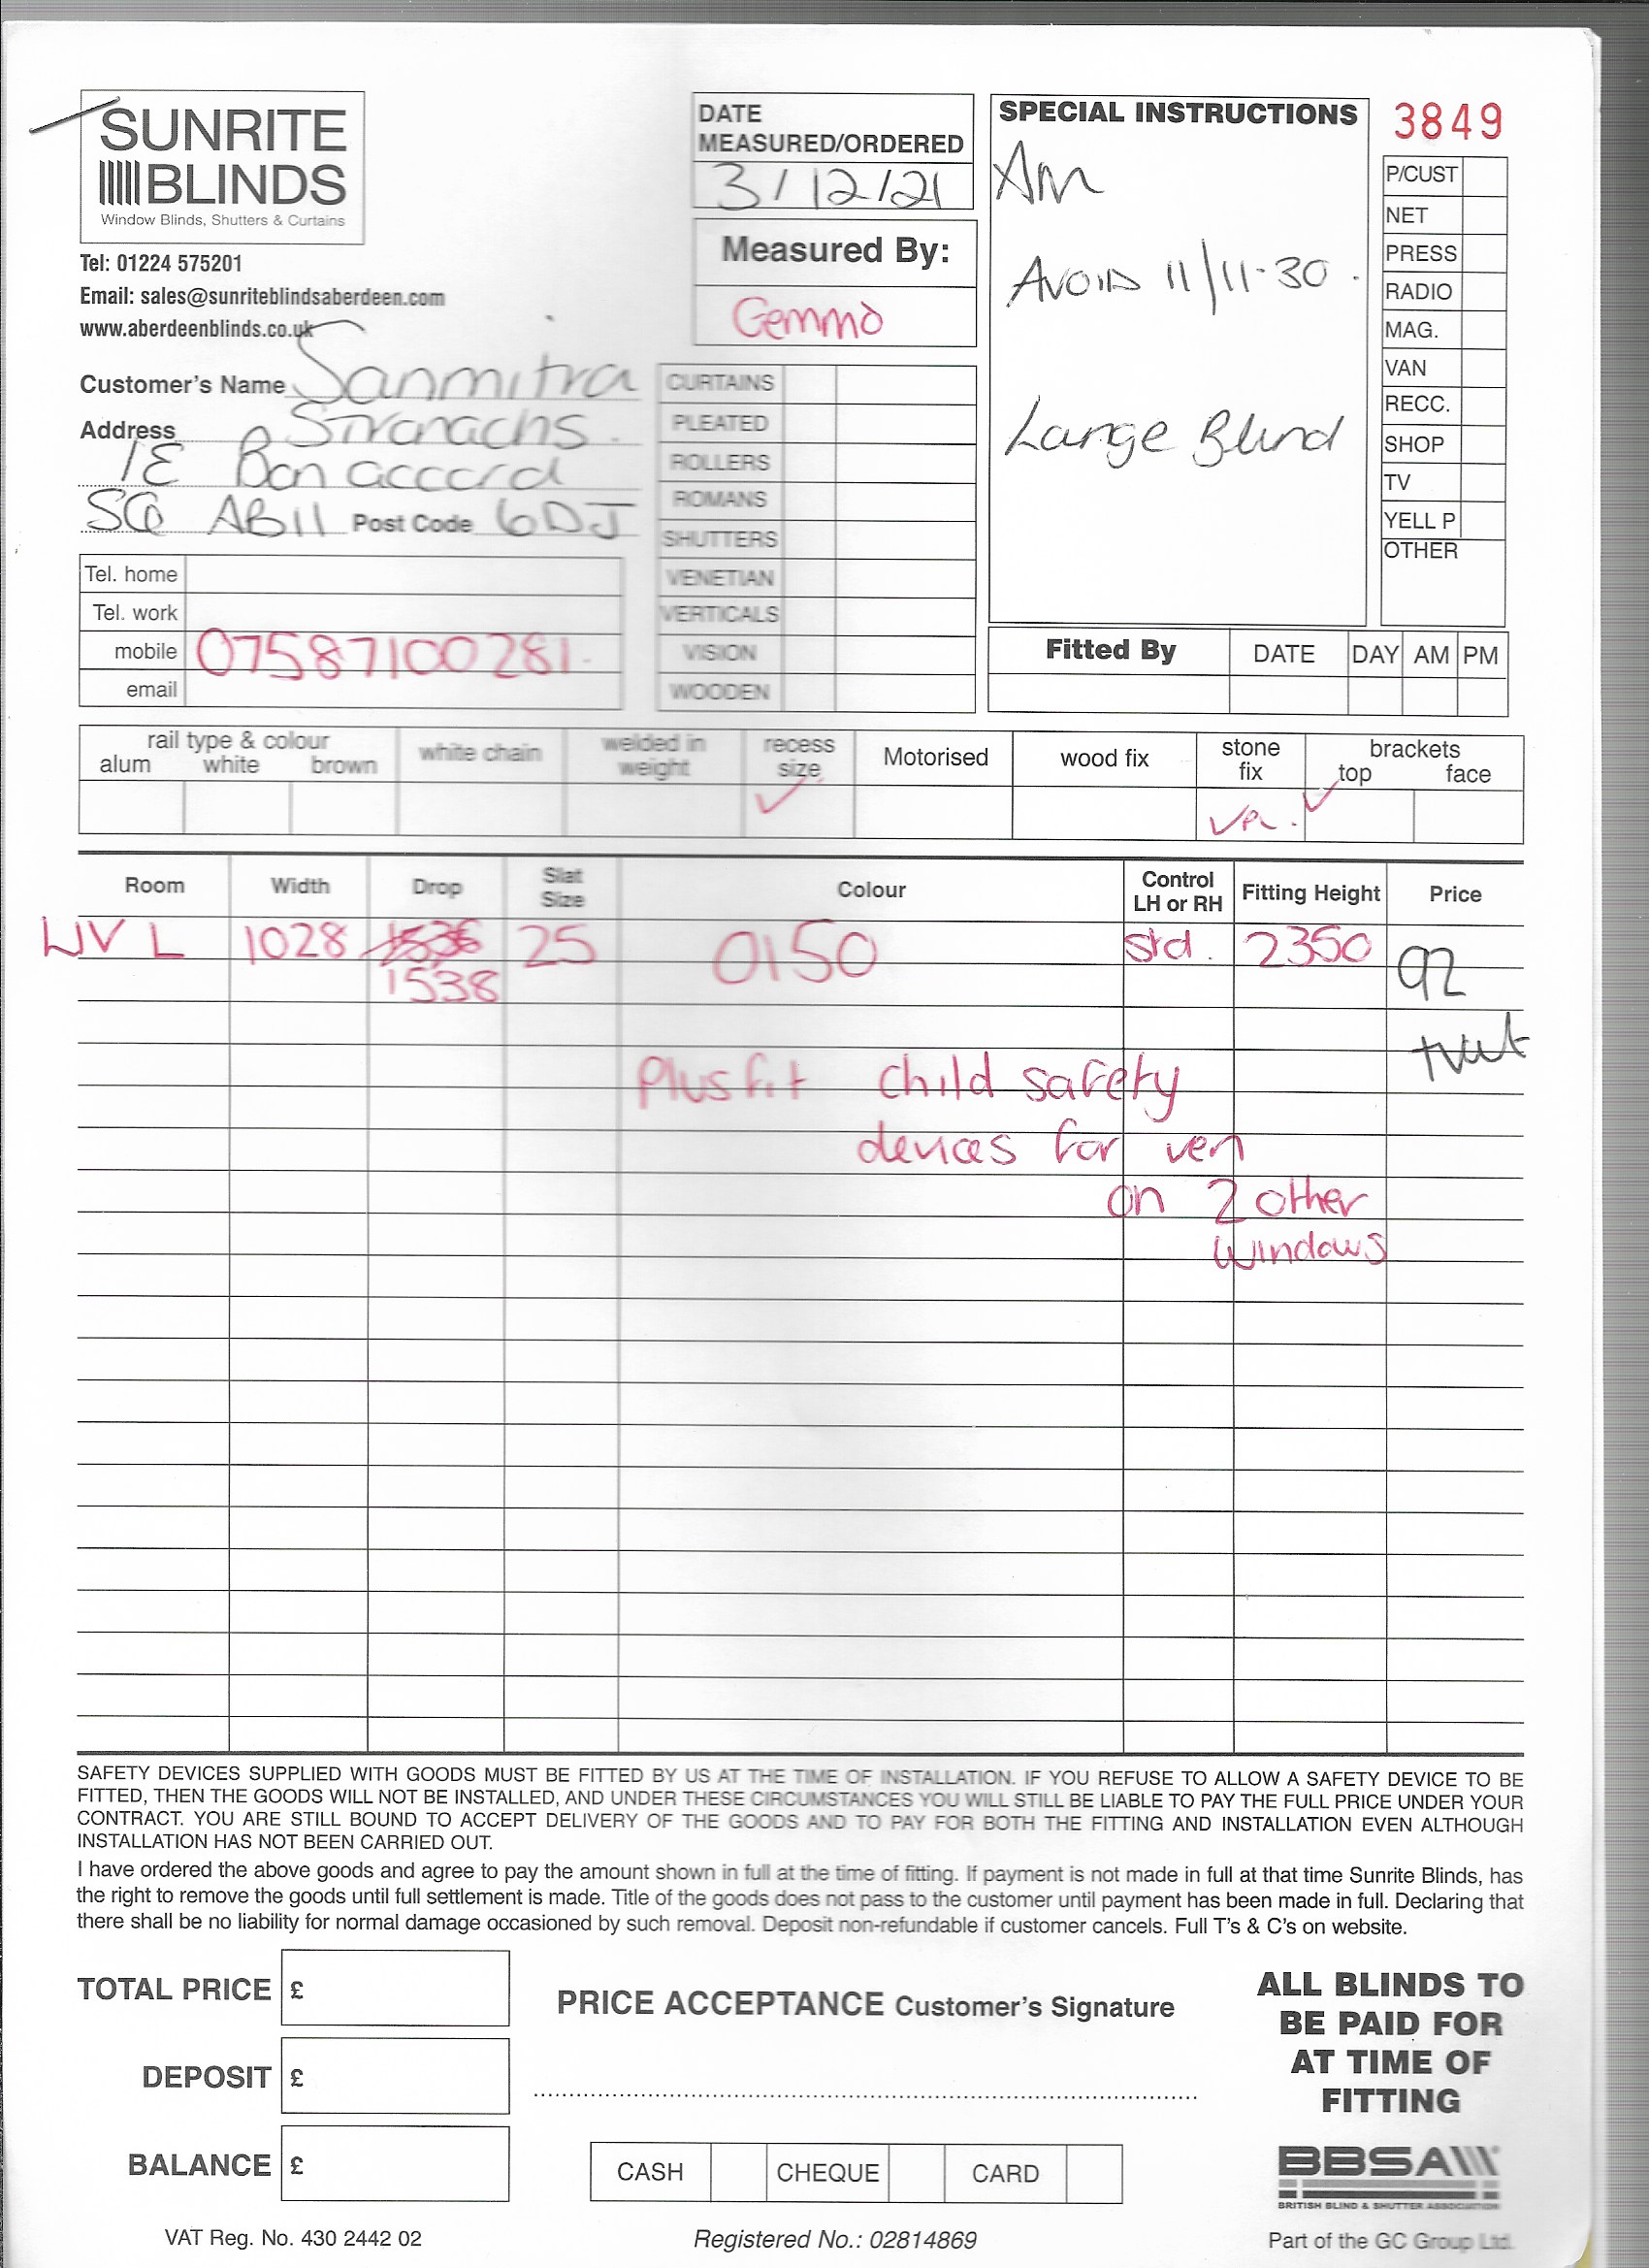 SUNRITE
BLINDS
Window Blinds, Shutters & Curtains
Tel: 01224 575201
Email: sales@sunriteblindsaberdeen.com
www.aberdeenblinds.co.uk
DATE
MEASURED/ORDERED
3/12/21
Measured By:
Gemma
SPECIAL INSTRUCTIONS
Am
Avoid 11/11-30.
Large Blind
3849
P/CUST
NET
PRESS
RADIO
MAG.
VAN
RECC.
SHOP
TV
YELL P
OTHER
Customer's Name Sanmitra
Address Stronachs.
1E Bon accord
SQ AB11 Post Code 6DJ
CURTAINS
PLEATED
ROLLERS
ROMANS
SHUTTERS
VENETIAN
VERTICALS
VISION
WOODEN
Tel. home
Tel. work
mobile 07587100281.
email
Fitted By DATE DAY AM PM
rail type & colour
alum white brown
white chain
welded in
weight
recess
size
Motorised
wood fix
stone
fix
brackets
top face
Room Width Drop Slat Size Colour Control LH or RH Fitting Height Price
L 1028 1536 25 0150 Std. 2350 92
1538
Plus fit child safety
devices for ven
on 2 other
windows
SAFETY DEVICES SUPPLIED WITH GOODS MUST BE FITTED BY US AT THE TIME OF INSTALLATION. IF YOU REFUSE TO ALLOW A SAFETY DEVICE TO BE
FITTED, THEN THE GOODS WILL NOT BE INSTALLED, AND UNDER THESE CIRCUMSTANCES YOU WILL STILL BE LIABLE TO PAY THE FULL PRICE UNDER YOUR
CONTRACT. YOU ARE STILL BOUND TO ACCEPT DELIVERY OF THE GOODS AND TO PAY FOR BOTH THE FITTING AND INSTALLATION EVEN ALTHOUGH
INSTALLATION HAS NOT BEEN CARRIED OUT.
I have ordered the above goods and agree to pay the amount shown in full at the time of fitting. If payment is not made in full at that time Sunrite Blinds, has
the right to remove the goods until full settlement is made. Title of the goods does not pass to the customer until payment has been made in full. Declaring that
there shall be no liability for normal damage occasioned by such removal. Deposit non-refundable if customer cancels. Full T's & C's on website.
TOTAL PRICE £
DEPOSIT £
BALANCE £
PRICE ACCEPTANCE Customer's Signature
CASH CHEQUE CARD
ALL BLINDS TO
BE PAID FOR
AT TIME OF
FITTING
BBSA
BRITISH BLIND & SHUTTER ASSOCIATION
VAT Reg. No. 430 2442 02
Registered No.: 02814869
Part of the GC Group Ltd.